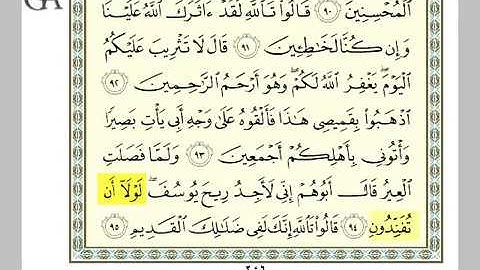 GA
ٱلْمُحْسِنِينَ ٩٠ قَالُوا۟ تَٱللَّهِ لَقَدْ ءَاثَرَكَ ٱللَّهُ عَلَيْنَا
وَإِن كُنَّا لَخَٰطِـِٔينَ ٩١ قَالَ لَا تَثْرِيبَ عَلَيْكُمُ
ٱلْيَوْمَ ۖ يَغْفِرُ ٱللَّهُ لَكُمْ ۖ وَهُوَ أَرْحَمُ ٱلرَّٰحِمِينَ ٩٢
ٱذْهَبُوا۟ بِقَمِيصِى هَٰذَا فَأَلْقُوهُ عَلَىٰ وَجْهِ أَبِى يَأْتِ بَصِيرًا
وَأْتُونِى بِأَهْلِكُمْ أَجْمَعِينَ ٩٣ وَلَمَّا فَصَلَتِ
ٱلْعِيرُ قَالَ أَبُوهُمْ إِنِّى لَأَجِدُ رِيحَ يُوسُفَ ۖ لَوْلَآ أَن
تُفَنِّدُونِ ٩٤ قَالُوا۟ تَٱللَّهِ إِنَّكَ لَفِى ضَلَٰلِكَ ٱلْقَدِيمِ ٩٥
٢٤٦